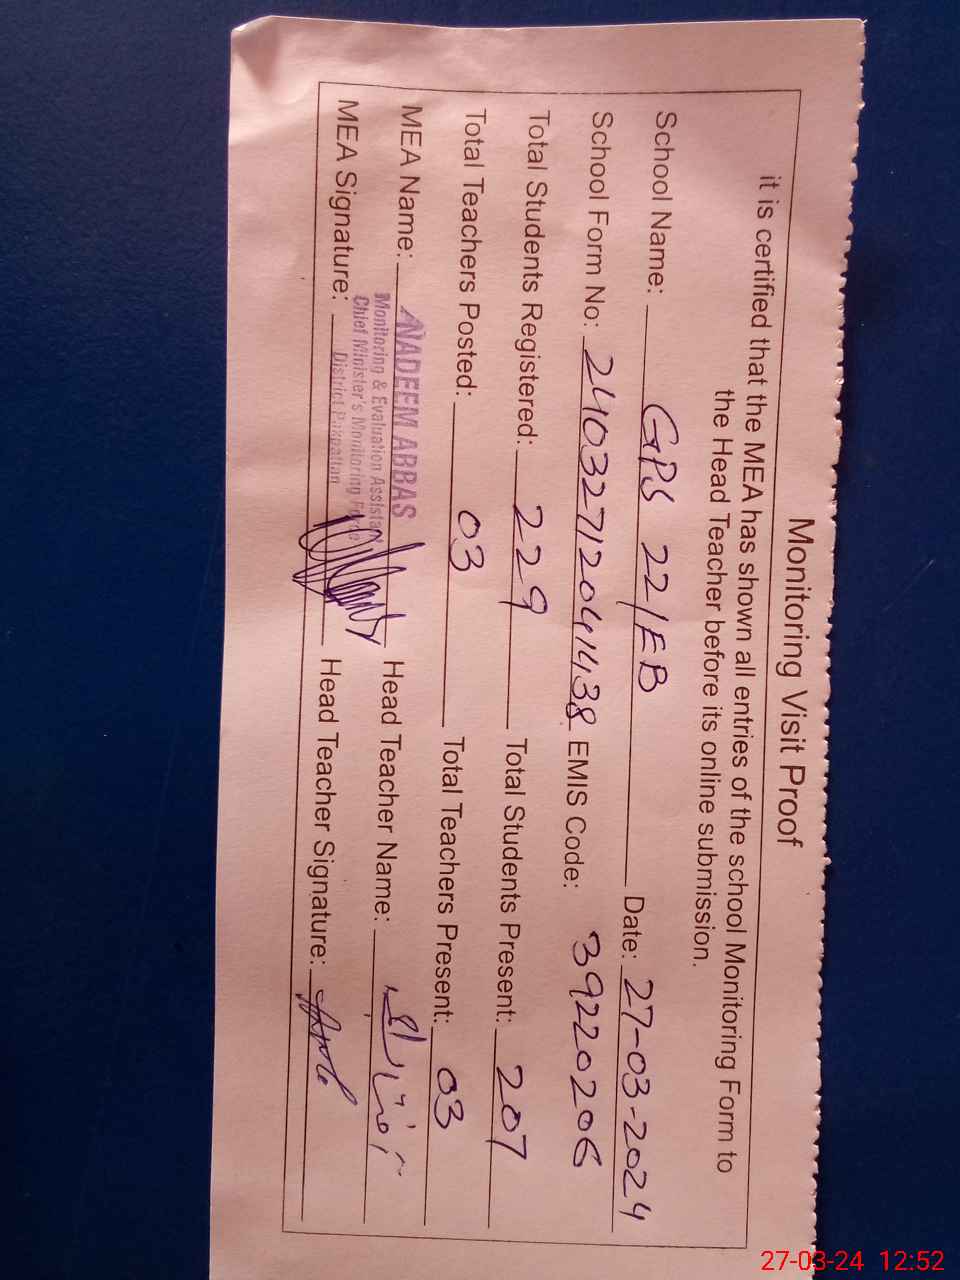 Monitoring Visit Proof
it is certified that the MEA has shown all entries of the school Monitoring Form to
the Head Teacher before its online submission.
School Name: GPS 22/EB Date: 27-03-2024
School Form No: 24032712041438 EMIS Code: 39220206
Total Students Registered: 229 Total Students Present: 207
Total Teachers Posted: 03 Total Teachers Present: 03
MEA Name: NADEEM ABBAS Head Teacher Name:
Monitoring & Evaluation Assistant
Chief Minister's Monitoring Force
District Pakpattan
MEA Signature: Head Teacher Signature:
27-03-24 12:52